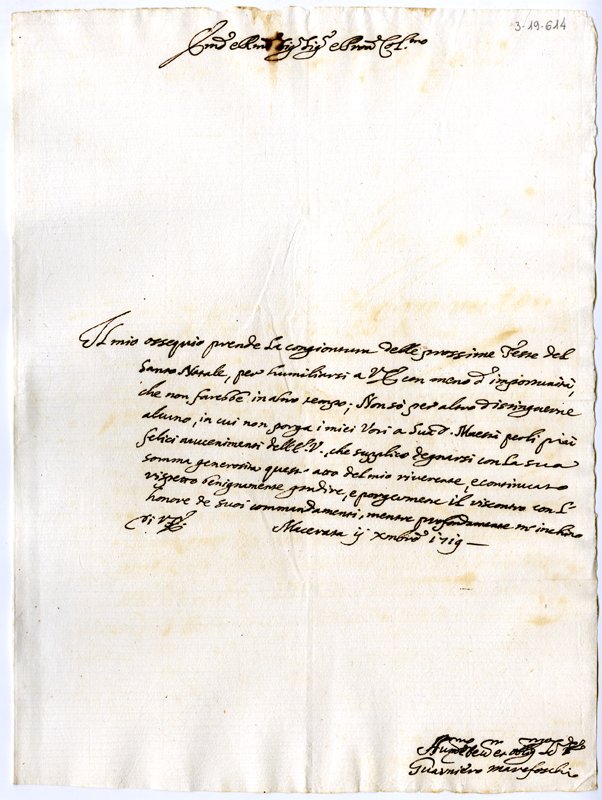 3-19-614
Em.o e R.mo Sig.r Sig.r e P.ron Col.mo
Il mio ossequio prende la congiontura delle prossime Feste del
Santo Natale, per humiliarsi a V.E. con meno d'importunità,
che non farebbe in altro tempo; Non sò per altro distinguerne
alcuno, in cui non porga i miei Voti a Sua D. Maestà per li più
felici avvenimenti dell'E.V., che supplico degnarsi con la sua
somma generosità questo atto del mio riverente, e continuato
rispetto benignamente gradire, e porgermene il riscontro con l'
honore de suoi commandamenti, mentre profondamente m'inchino
di V.E.
Macerata ij Xmbre 1719
Hum.mo Dev.mo et obl.mo
Guarniero Marefoschi